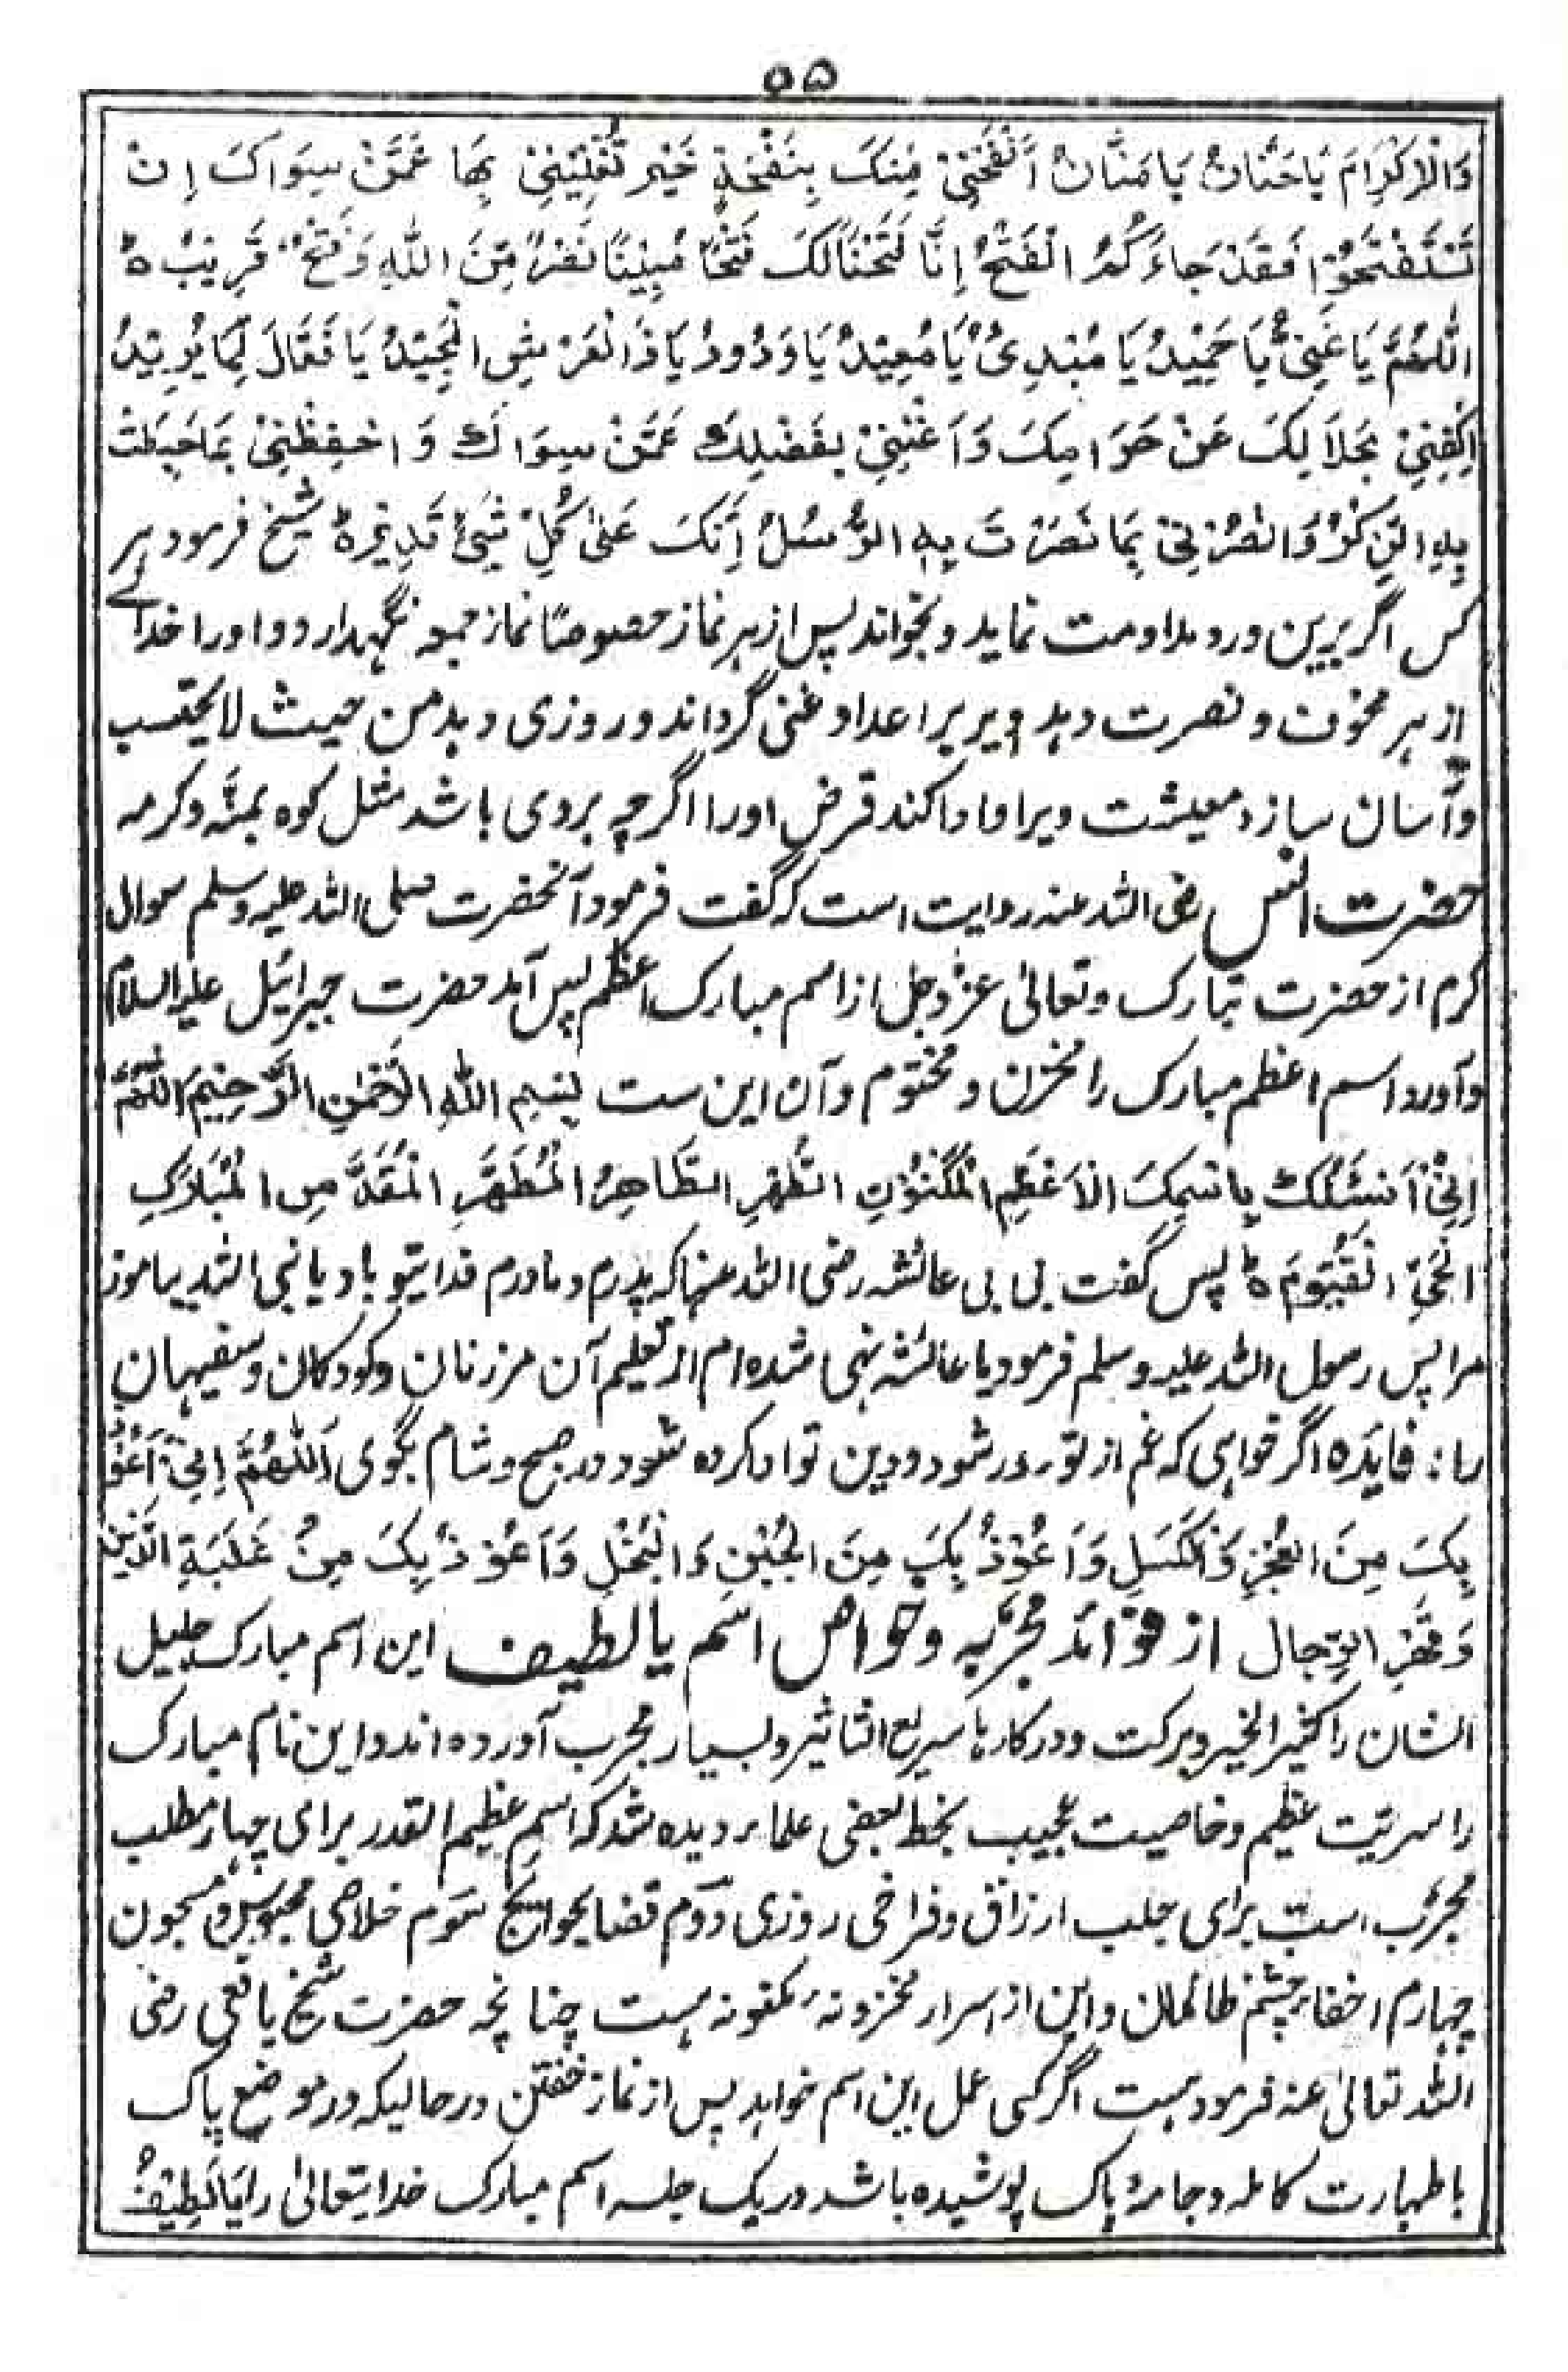 ۵۵
وَالْاِكْرَامِ يَا حَنَّانُ يَا مَنَّانُ اَنْفِحْنِیْ مِنْکَ بِنَفْحَةِ خَیْرٍ تُغْنِیْنِیْ بِهَا عَمَّنْ سِوَاکَ اِنْ
تَسْتَفْتِحُوْا فَقَدْ جَاءَكُمُ الْفَتْحُ اِنَّا فَتَحْنَا لَکَ فَتْحًا مُّبِیْنًا نَصْرٌ مِّنَ اللّٰهِ وَفَتْحٌ قَرِیْبٌ ه
اَللّٰهُمَّ یَا غَنِیُّ یَا حَمِیْدُ یَا مُبْدِئُ یَا مُعِیْدُ یَا وَدُوْدُ یَا ذَا الْعَرْشِ الْمَجِیْدُ یَا فَعَّالَ لِّمَا یُرِیْدُ
اِکْفِنِیْ بِحَلَالِکَ عَنْ حَرَامِکَ وَاَغْنِنِیْ بِفَضْلِکَ عَمَّنْ سِوَاکَ وَ احْفِظْنِیْ بِمَا حَفِظْتَ
بِهِ الذِّکْرَ وَانْصُرْنِیْ بِمَا نَصَرْتَ بِهِ الرُّسُلَ اِنَّکَ عَلٰی کُلِّ شَیْئٍ قَدِیْرٌ ه شیخ فرمود هر
کس اگر برین ورد مداومت نماید و بخواند پس از هر نماز خصوصًا نماز جمعه نگهدارد و اورا خدائے
از هر مخوف و نصرت دهد ویرا بر اعدا و غنی گرداند و روزی دهد من حیث لا یحتسب
و آسان سازد معیشت ویرا و ادا کند قرض اورا اگرچه بروی باشد مثل کوه بمنّه و کرمه
حضرت انس رضی الله عنه روایت است که گفت فرمود آنحضرت صلی الله علیه وسلم سوال
کردم از حضرت تبارک و تعالیٰ عزّ وجل از اسم مبارک اعظم پس آمد حضرت جبرائیل علیه السلام
و آورد اسم اعظم مبارک را مخزن و مختوم و آن این ست بِسْمِ اللّٰهِ الرَّحْمٰنِ الرَّحِیْمِ اَللّٰهُمَّ
اِنِّیْ اَسْئَلُکَ بِاسْمِکَ الْاَعْظَمِ الْمَکْنُوْنِ الطُّهْرِ الطَّاهِرِ الْمُطَهَّرِ الْمُقَدَّسِ الْمُبَارَکِ
الْحَیِّ الْقَیُّوْمِ ه پس گفت بی بی عائشه رضی الله عنها که پدرم و مادرم فدای تو باد یا نبی الله بیاموز
مرا پس رسول الله علیه وسلم فرمود یا عائشه نهی شده ام از تعلیم آن مر زنان و کودکان و سفیهان
را: فایده اگر خواهی که غم از تو دور شود و دین تو ادا کرده شود در صبح و شام بگوی اَللّٰهُمَّ اِنِّیْ اَعُوْذُ
بِکَ مِنَ الْعَجْزِ وَالْکَسَلِ وَاَعُوْذُ بِکَ مِنَ الْجُبْنِ وَالْبُخْلِ وَاَعُوْذُ بِکَ مِنْ غَلَبَةِ الدَّیْنِ
وَ قَهْرِ الرِّجَالِ از فوائد مجرّبه و خواص اسم یا لطیف این اسم مبارک جلیل
الشان را کثیر الخیر و برکت و در کارها سریع التاثیر و بسیار مجرب آورده اند و این نام مبارک
را سریّت عظیم و خاصیت عجیب بخط بعضی علما بر دیده شد که اسم عظیم القدر برای چهار مطلب
مجرّب است برای جلب ارزاق و فراخی روزی دوّم قضا حوایج سوم خلاصی محبوس و مسجون
چهارم اخفا بر چشم ظالمان و این از اسرار مخزونه مکنونه هست چنانچه حضرت شیخ یافعی رضی
الله تعالیٰ عنه فرموده ست اگر کسی عمل این اسم خواهد پس از نماز خفتن در حالیکه در موضع پاک
با طهارت کامله و جامهٔ پاک پوشیده باشد در یک جلسه اسم مبارک خدایتعالیٰ را یَا لَطِیْفُ